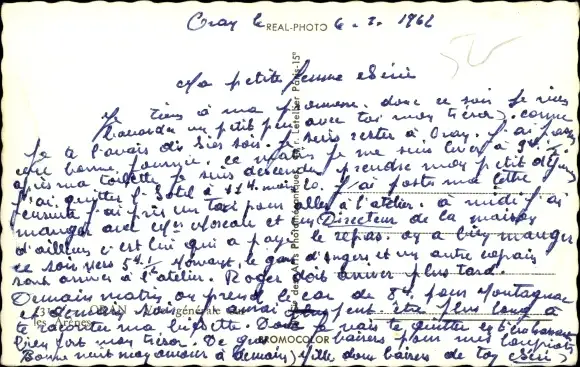 Oran le 6. 2. 1962
REAL-PHOTO
Ma petite femme chérie
Je tiens à ma promesse. donc ce soir je viens
bavarder un petit peu avec toi mon trésor. comme
je l'avais dit hier soir. Je suis rester à Oran. J'ai passé
une bonne journée. ce matin je me suis lever à 9h ½
après ma toilette je suis descendu prendre mon petit déjeuner
J'ai quitter l'hotel à 11h moins 20. J'ai poster ma lettre
ensuite j'ai pris un taxi pour aller à l'atelier. à midi j'ai
manger avec Mr Moreau et un Directeur de la maison
d'ailleurs c'est lui qui a payé le repas. on a bien manger
ce soir vers 5h ½ le gars d'angers et un autre copain
sont arriver à l'atelier. Roger doit arriver plus tard.
Demain matin on prend le car de 8h pour Montagnac
et demain soir j'aurai peut être plus long à
te raconter ma biquette. Donc je vais te quitter en t'embrassant
bien fort mon trésor. De gros baisers pour mes loupiots
Bonne nuit mon amour à demain, mille doux baisers de ton chéri
ORAN Vue générale
les Arènes
PROMOCOLOR
des Arts Photomécaniques, r. Letellier Paris-15°